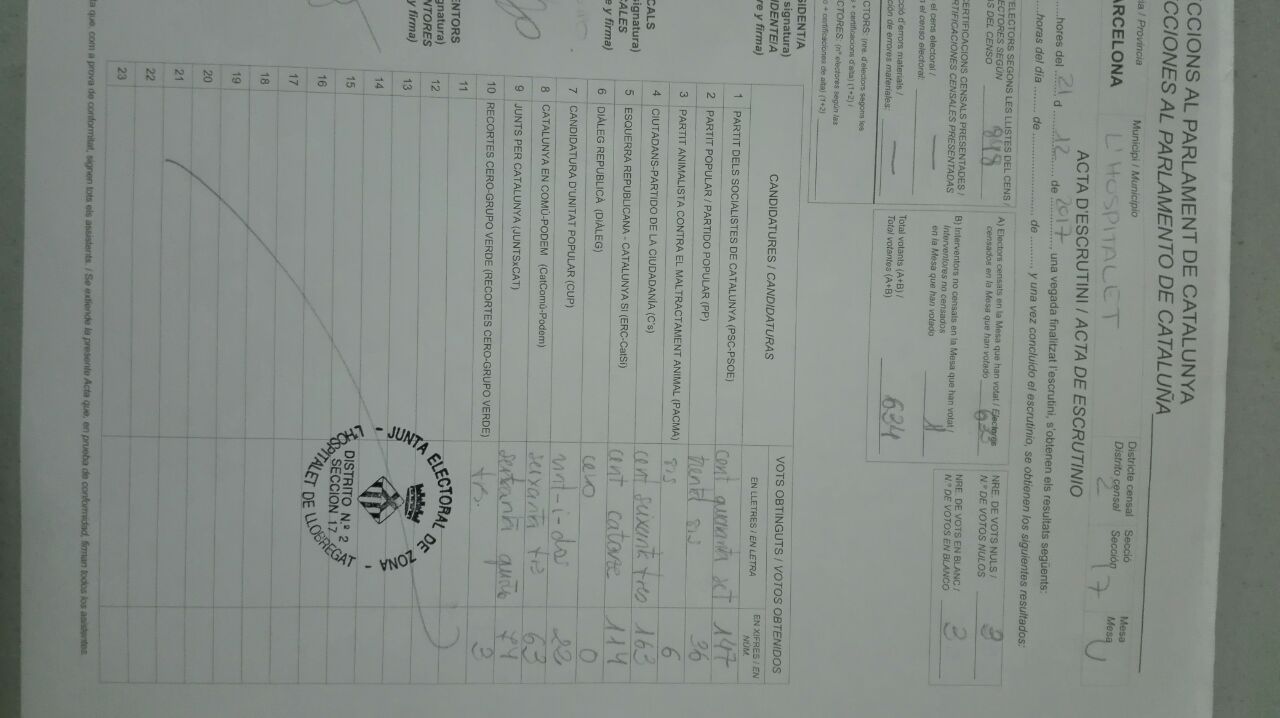 CCIONS AL PARLAMENT DE CATALUNYA
CCIONES AL PARLAMENTO DE CATALUÑA
ia / Provincia
ARCELONA
Municipi / Municipio
L'HOSPITALET
Districte censal
Distrito censal
2
Secció
Sección
17
Mesa
Mesa
U
ACTA D'ESCRUTINI / ACTA DE ESCRUTINIO
hores del 21 d 12 de 2017, una vegada finalitzat l'escrutini, s'obtenen els resultats següents:
horas del día de de, y una vez concluido el escrutinio, se obtienen los siguientes resultados:
ELECTORS SEGONS LES LLISTES DEL CENS /
ECTORES SEGÚN
S DEL CENSO
848
CERTIFICACIONS CENSALS PRESENTADES /
RTIFICACIONES CENSALES PRESENTADAS
el cens electoral /
n el censo electoral:
ció d'errors materials /
ción de errores materiales:
CTORS: (nre. d'electors segons les
s + certificacions d'alta) (1+2) /
CTORES: (nº electores según las
o + certificaciones de alta) (1+2)
A) Electors censats en la Mesa que han votat / Electores
censados en la Mesa que han votado 633
B) Interventors no censats en la Mesa que han votat /
Interventores no censados
en la Mesa que han votado 1
Total votants (A+B) /
Total votantes (A+B) 634
NRE. DE VOTS NULS /
N.º DE VOTOS NULOS 3
NRE. DE VOTS EN BLANC /
N.º DE VOTOS EN BLANCO 3
CANDIDATURES / CANDIDATURAS
VOTS OBTINGUTS / VOTOS OBTENIDOS
EN LLETRES / EN LETRA
EN XIFRES / EN NÚM.
1 PARTIT DELS SOCIALISTES DE CATALUNYA (PSC-PSOE) cent quaranta set 147
2 PARTIT POPULAR / PARTIDO POPULAR (PP) trenta sis 36
3 PARTIT ANIMALISTA CONTRA EL MALTRACTAMENT ANIMAL (PACMA) sis 6
4 CIUTADANS-PARTIDO DE LA CIUDADANÍA (C's) cent seixanta tres 163
5 ESQUERRA REPUBLICANA - CATALUNYA SÍ (ERC-CatSí) cent catorze 114
6 DIÀLEG REPUBLICÀ (DIÀLEG) cero 0
7 CANDIDATURA D'UNITAT POPULAR (CUP) vint-i-dos 22
8 CATALUNYA EN COMÚ-PODEM (CatComú-Podem) seixanta tres 63
9 JUNTS PER CATALUNYA (JUNTSxCAT) setanta quatre 74
10 RECORTES CERO-GRUPO VERDE (RECORTES CERO-GRUPO VERDE) tres. 3
11
12
13
14
15
16
17
18
19
20
21
22
23
JUNTA ELECTORAL DE ZONA -
L'HOSPITALET DE LLOBREGAT -
DISTRITO N.º 2
SECCION 17
SIDENT/A
signatura)
IDENTE/A
re y firma)
CALS
signatura)
CALES
e y firma)
ENTORS
gnatura)
NTORES
y firma)
ta que com a prova de conformitat, signen tots els assistents. / Se extiende la presente Acta que, en prueba de conformidad, firman todos los asistentes